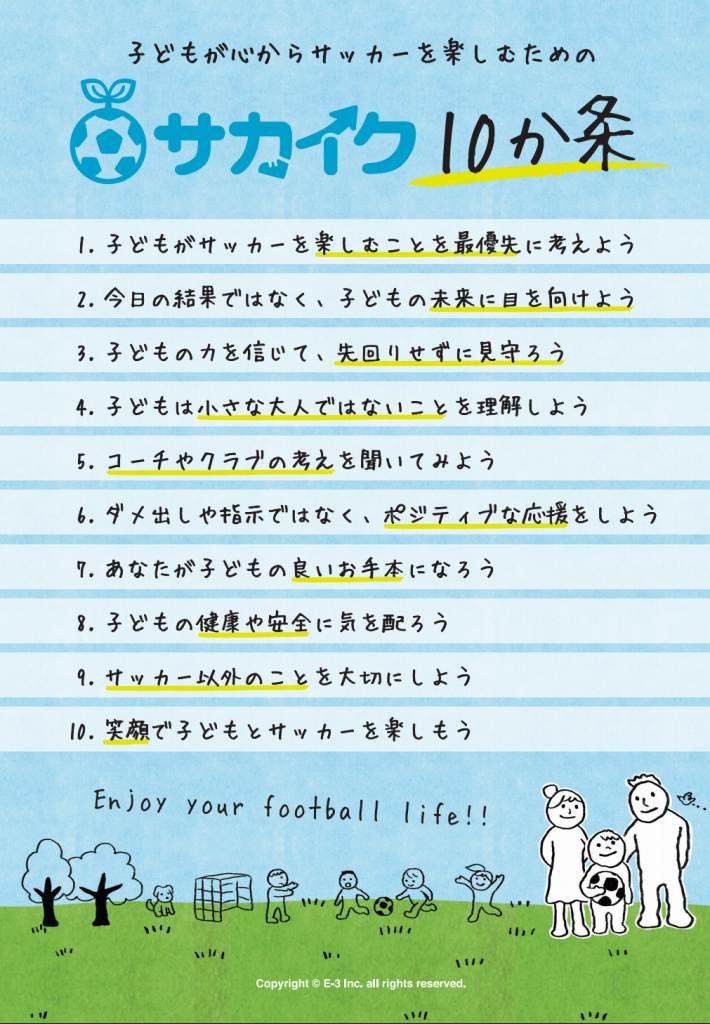 子どもが心からサッカーを楽しむための
サカイク 10か条
1. 子どもがサッカーを楽しむことを最優先に考えよう
2. 今日の結果ではなく、子どもの未来に目を向けよう
3. 子どもの力を信じて、先回りせずに見守ろう
4. 子どもは小さな大人ではないことを理解しよう
5. コーチやクラブの考えを聞いてみよう
6. ダメ出しや指示ではなく、ポジティブな応援をしよう
7. あなたが子どもの良いお手本になろう
8. 子どもの健康や安全に気を配ろう
9. サッカー以外のことを大切にしよう
10. 笑顔で子どもとサッカーを楽しもう
Enjoy your football life!!
Copyright © E-3 Inc. all rights reserved.